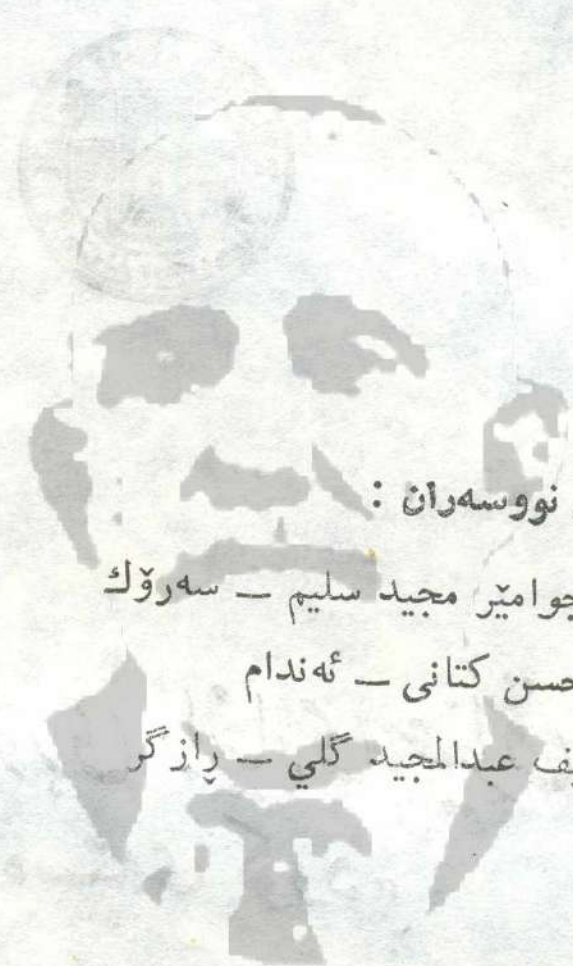 نووسەران :
جوامێر مجید سلیم — سەرۆك
حسن كتانی — ئەندام
عبدالمجید گلي — ڕازگر